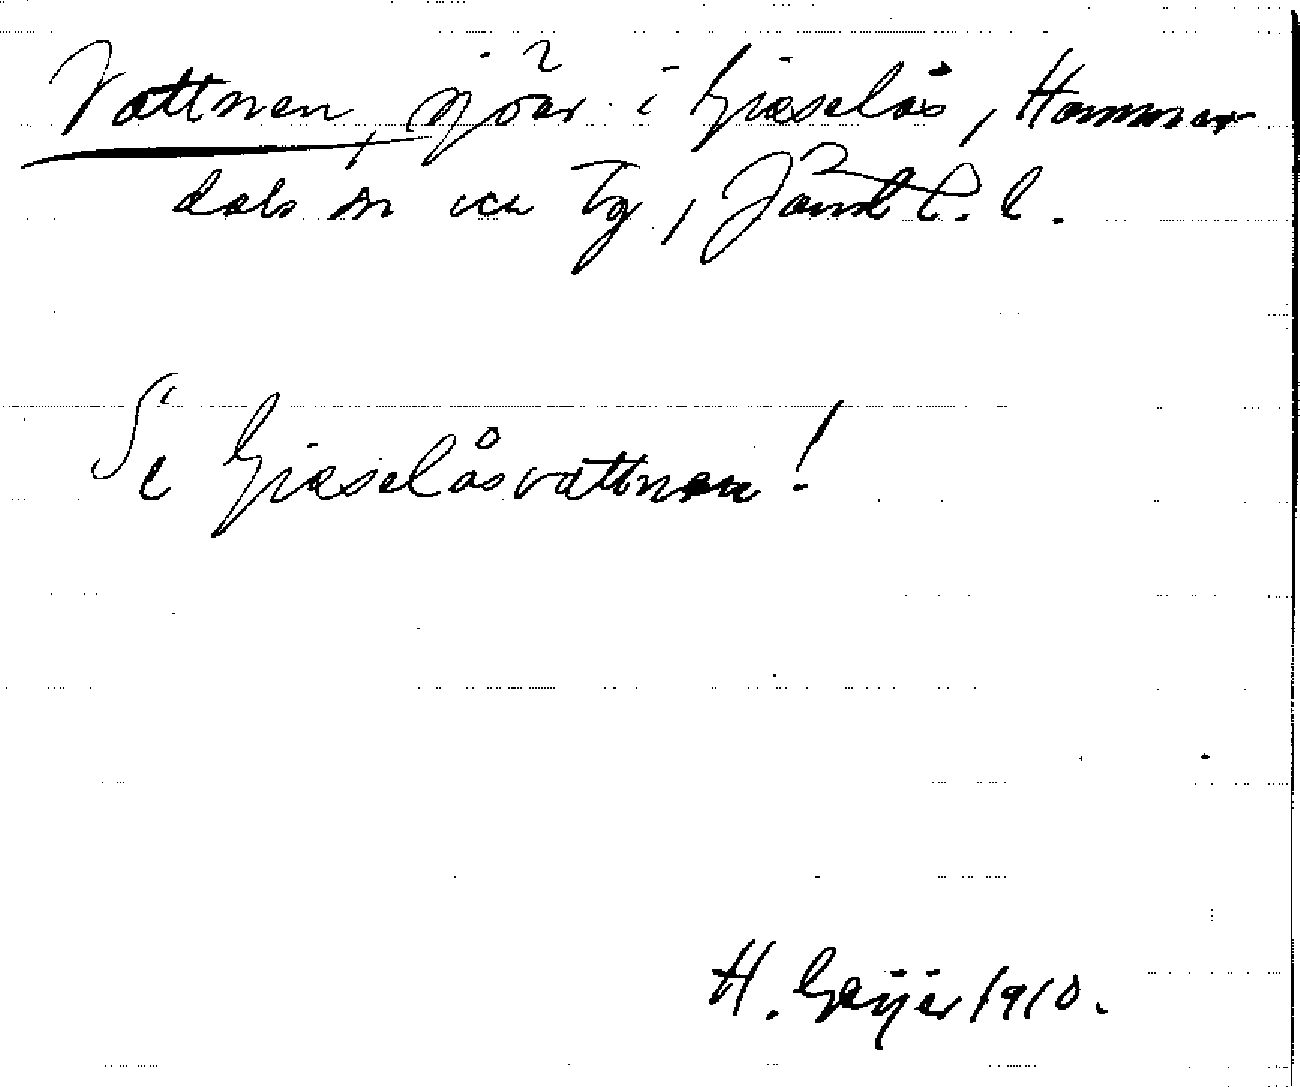 Vattnen, sjöar i Gisselås, Hammar
dals sn och tg, Jämtl. l.
Se Gisselåsvattnen!
H. Geijer 1910.